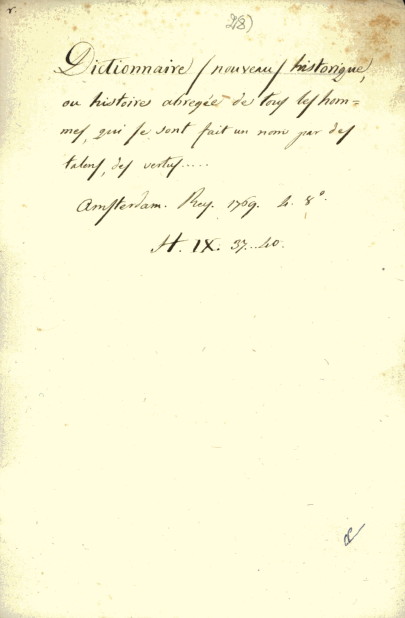 r.
28)
Dictionnaire (nouveau) historique,
ou histoires abregée de tous les hom=
mes, qui se sont fait un nom par des
talens, des vertus.....
Amsterdam. Rey. 1769. 4. 8°.
H. IX. 37..40.